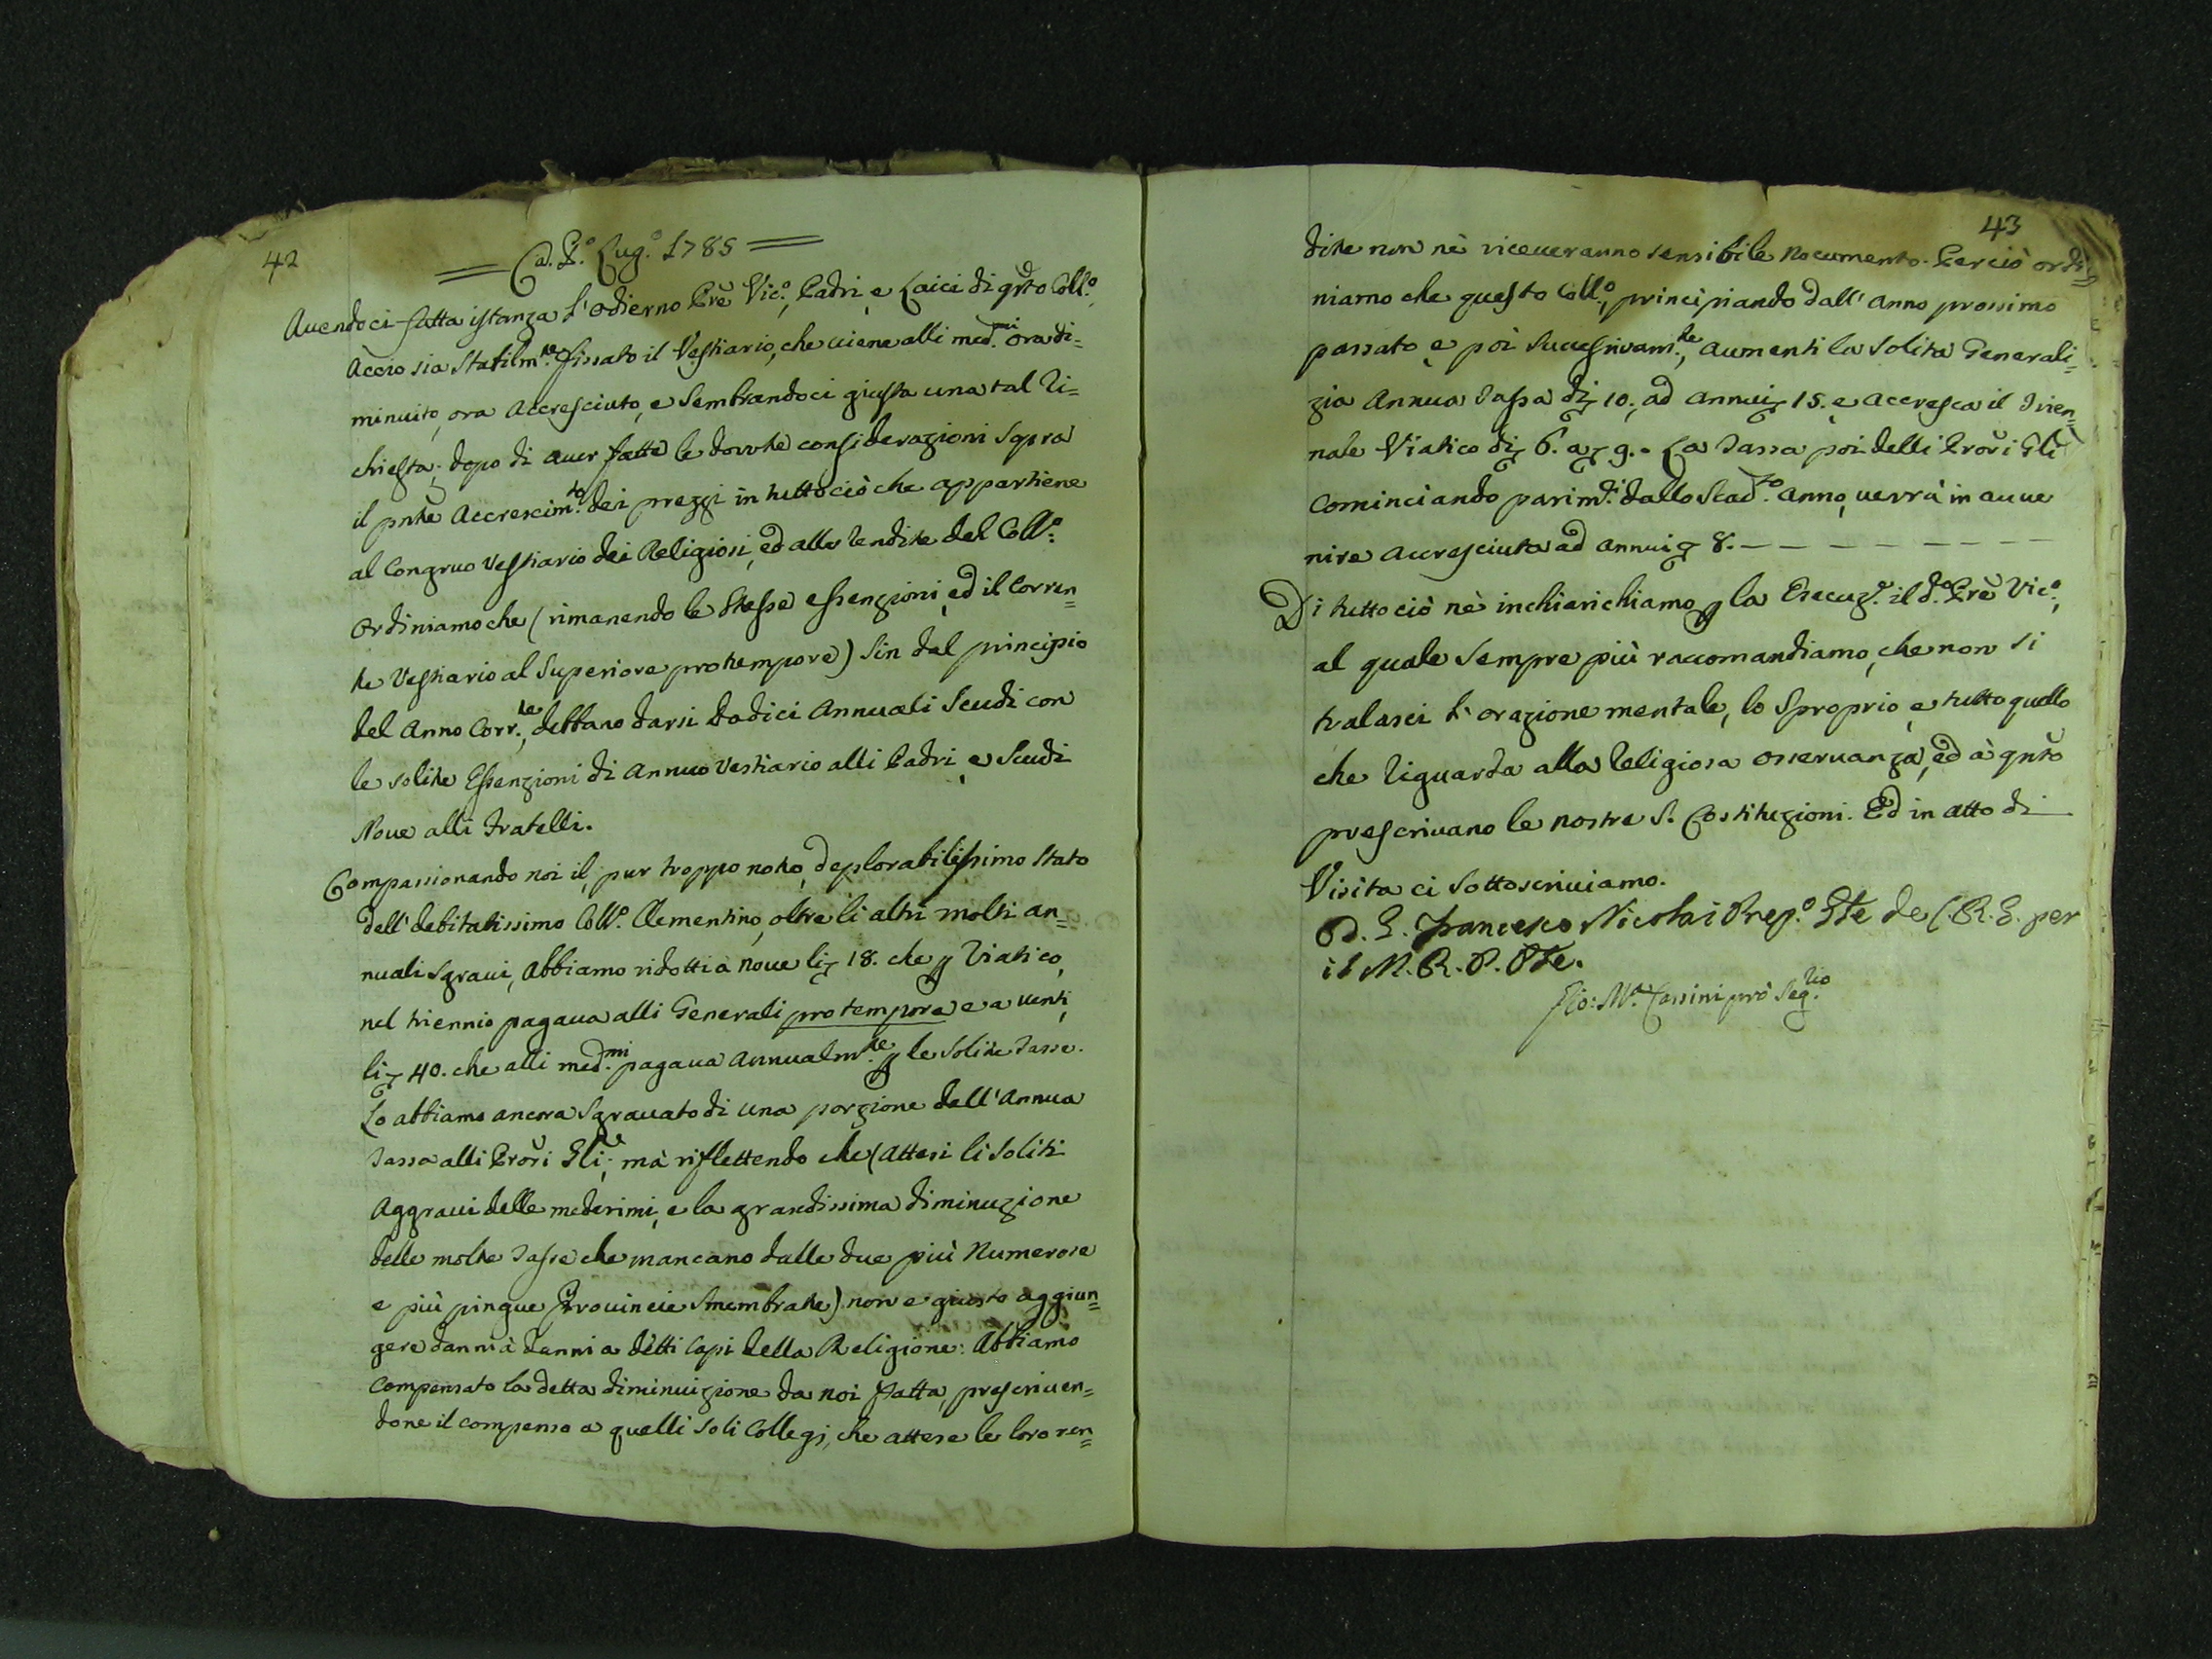 42
= A. P.º Lug.º 1785 =
Avendoci fatta istanza l'odierno Prē Vic.º, Padri, e Laici di qsto Coll.º,
acciò sia stabilm.te fissato il Vestiario, che viene alli med.mi ora di=
minuito, ora accresciuto, e sembrandoci giusta una tal ri=
chiesta; dopo di aver fatte le dovute considerazioni sopra
il pnte accrescim.to dei prezzi in tutto ciò che appartiene
al congruo Vestiario dei Religiosi, ed alle rendite del Coll.º:
Ordiniamo che (rimanendo le stesse essenzioni, ed il corren=
te Vestiario al Superiore pro tempore) sin dal principio
del Anno Corr.te, debbano darsi dodici annuali Scudi con
le solite Essenzioni di annuo Vestiario alli Padri, e Scudi
Nove alli Fratelli.
Compassionando noi il, pur troppo noto, deplorabilissimo stato
dell'debitatissimo Coll.º Clementino, oltre li altri molti an=
nuali sgravi, abbiamo ridotti a nove li 18. che p Viatico,
nel triennio pagava alli Generali pro tempore e a venti,
li 40. che alli med.mi pagava annualm.te p le solite Tasse.
Lo abbiamo ancora sgravato di una porzione dell'annua
Tassa alli Prōri Gli; mà riflettendo che (attesi li soliti
aggravi delle medesimi, e la grandissima diminuzione
delle molte Tasse che mancano dalle due più numerose
e più pingue Provincie smembrate) non è giusto aggiun=
gere danni à danni a detti Capi della Religione: Abbiamo
compensato la detta diminuizione da noi fatta, prescriven=
done il compenso a quelli soli Collegj, che attese le loro ren=
43
dite non nè riceveranno sensibile nocumento. Perciò ordi=
niamo che questo Coll.º, principiando dall'anno prossimo
passato e poi successivam.te, aumenti la solita Generali=
zia annua Tassa di 10., ad annui 15. e accresca il Trien=
nale Viatico di 6. a 9. La Tassa poi delli Prōri Gli
cominciando parim.ti dallo scad.to anno, verrà in avve
nire accresciuta ad annui 8. — — — — — — — —
Di tutto ciò nè inchierichiamo p la Esecuz.e il d.º Prē Vic.º,
al quale sempre più raccomandiamo, che non si
tralasci l'orazione mentale, lo sproprio, e tutto quello
che riguarda alla Religiosa osservanza, ed à qnto
prescrivano le nostre S. Costituzioni. Ed in atto di
Visita ci sottoscriviamo.
D. G. Francesco Nicolai Prep.º Gle de C. R. S. per
il M. R. P. Gle.
Gio: M.a Cassini prò Seg.rio